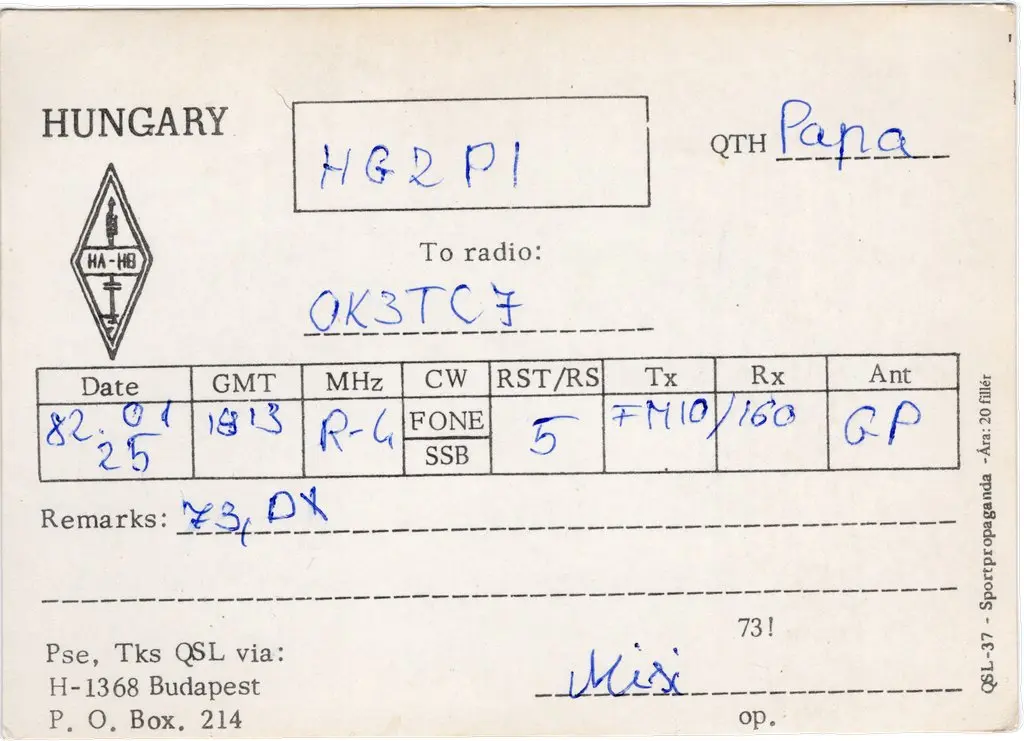 HUNGARY
HG2PI
QTH Papa
HA-HG
To radio:
OK3TCZ
Date GMT MHz CW RST/RS Tx Rx Ant
FONE
SSB
82. 01 25 1813 R-4 5 FM10/160 GP
Remarks: 73, DX
73!
Pse, Tks QSL via:
H-1368 Budapest
P. O. Box. 214
Misi
op.
QSL-37 - Sportpropaganda - Ára: 20 fillér